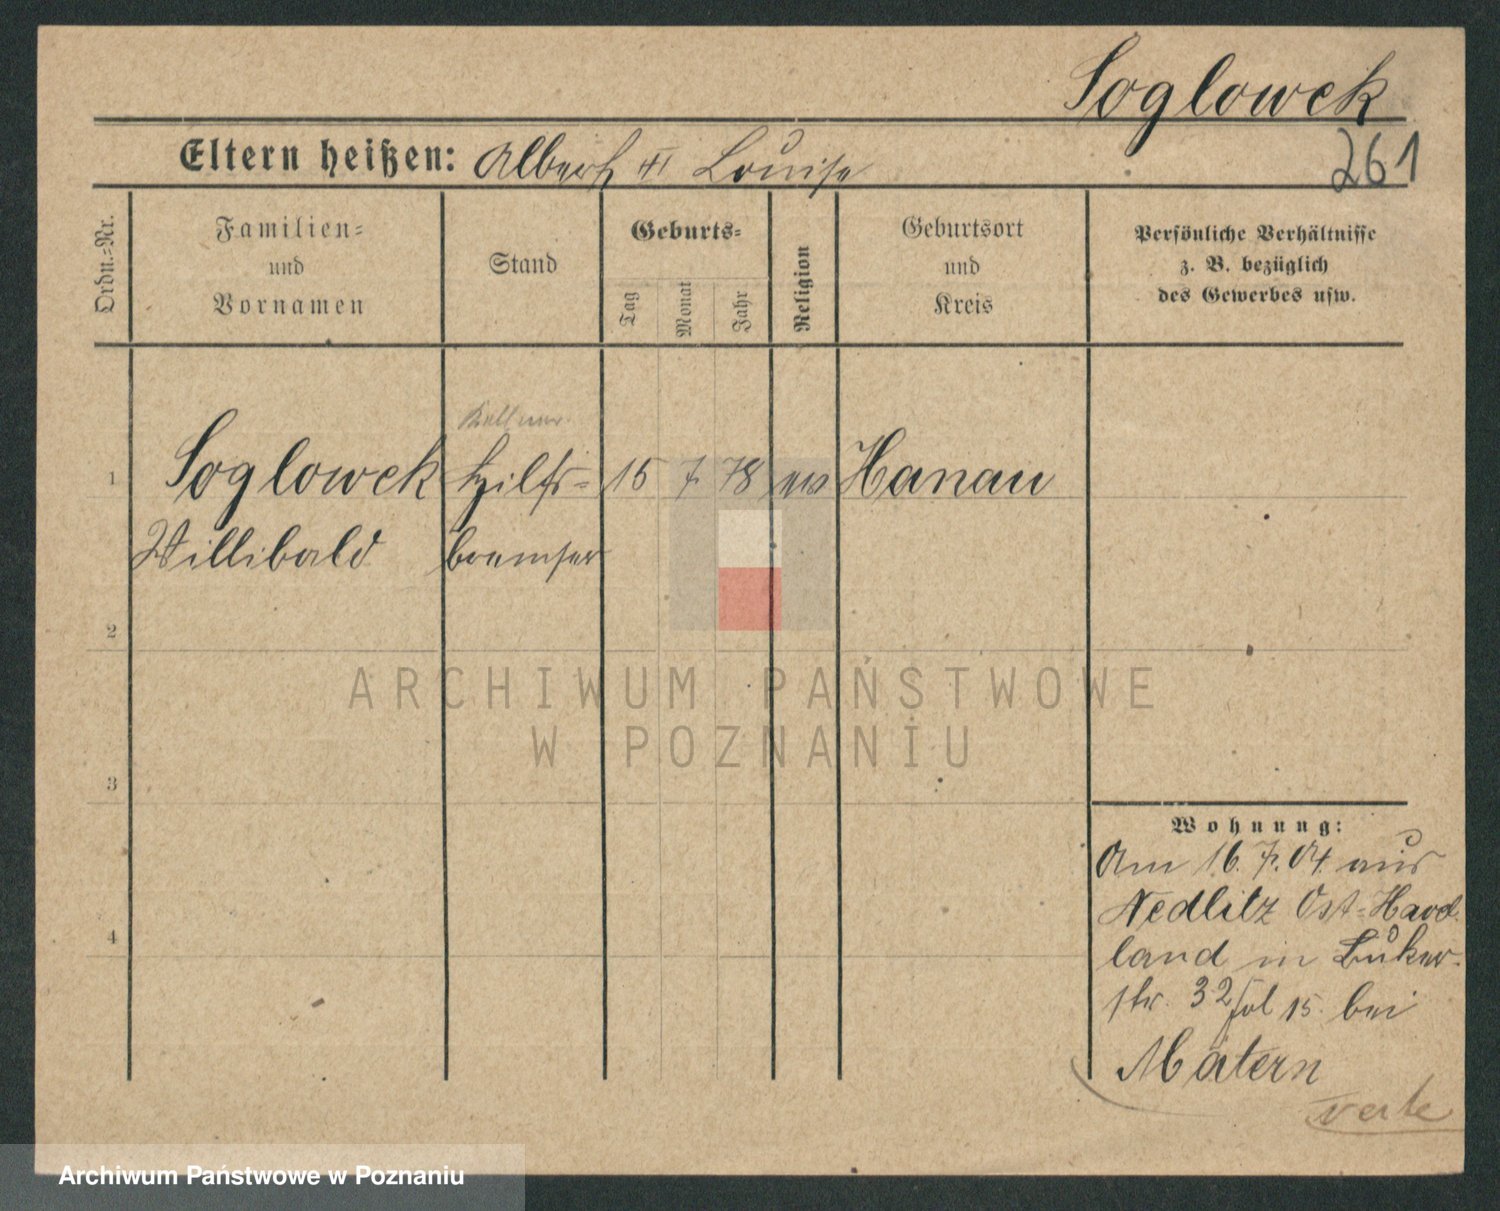 Soglowek
261
Eltern heißen: Albert u Louise
Ordn.=Nr.
Familien=
und
Vornamen
Stand
Geburts=
Tag
Monat
Jahr
Religion
Geburtsort
und
Kreis
Persönliche Verhältnisse
z. B. bezüglich
des Gewerbes usw.
Kellner.
1 Soglowek Hilfs= 15 7. 78 ev Hanau
Willibald bremser
2
ARCHIWUM PAŃSTWOWE
W POZNANIU
3
4
Wohnung:
Am 16. 7. 04 aus
Nedlitz Ost=Havel
land in
str. 32 bei
Matern
verte
Archiwum Państwowe w Poznaniu